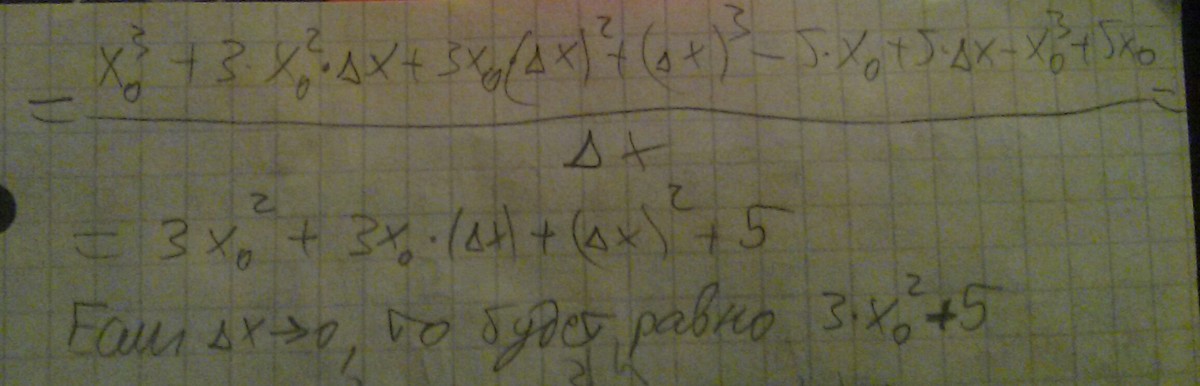 = x₀³ + 3·x₀²·Δx + 3x₀(Δx)² + (Δx)³ − 5·x₀ + 5·Δx − x₀³ + 5x₀ =
Δx
= 3x₀² + 3x₀·(Δx) + (Δx)² + 5
Если Δx→0, то будет равно 3·x₀² + 5